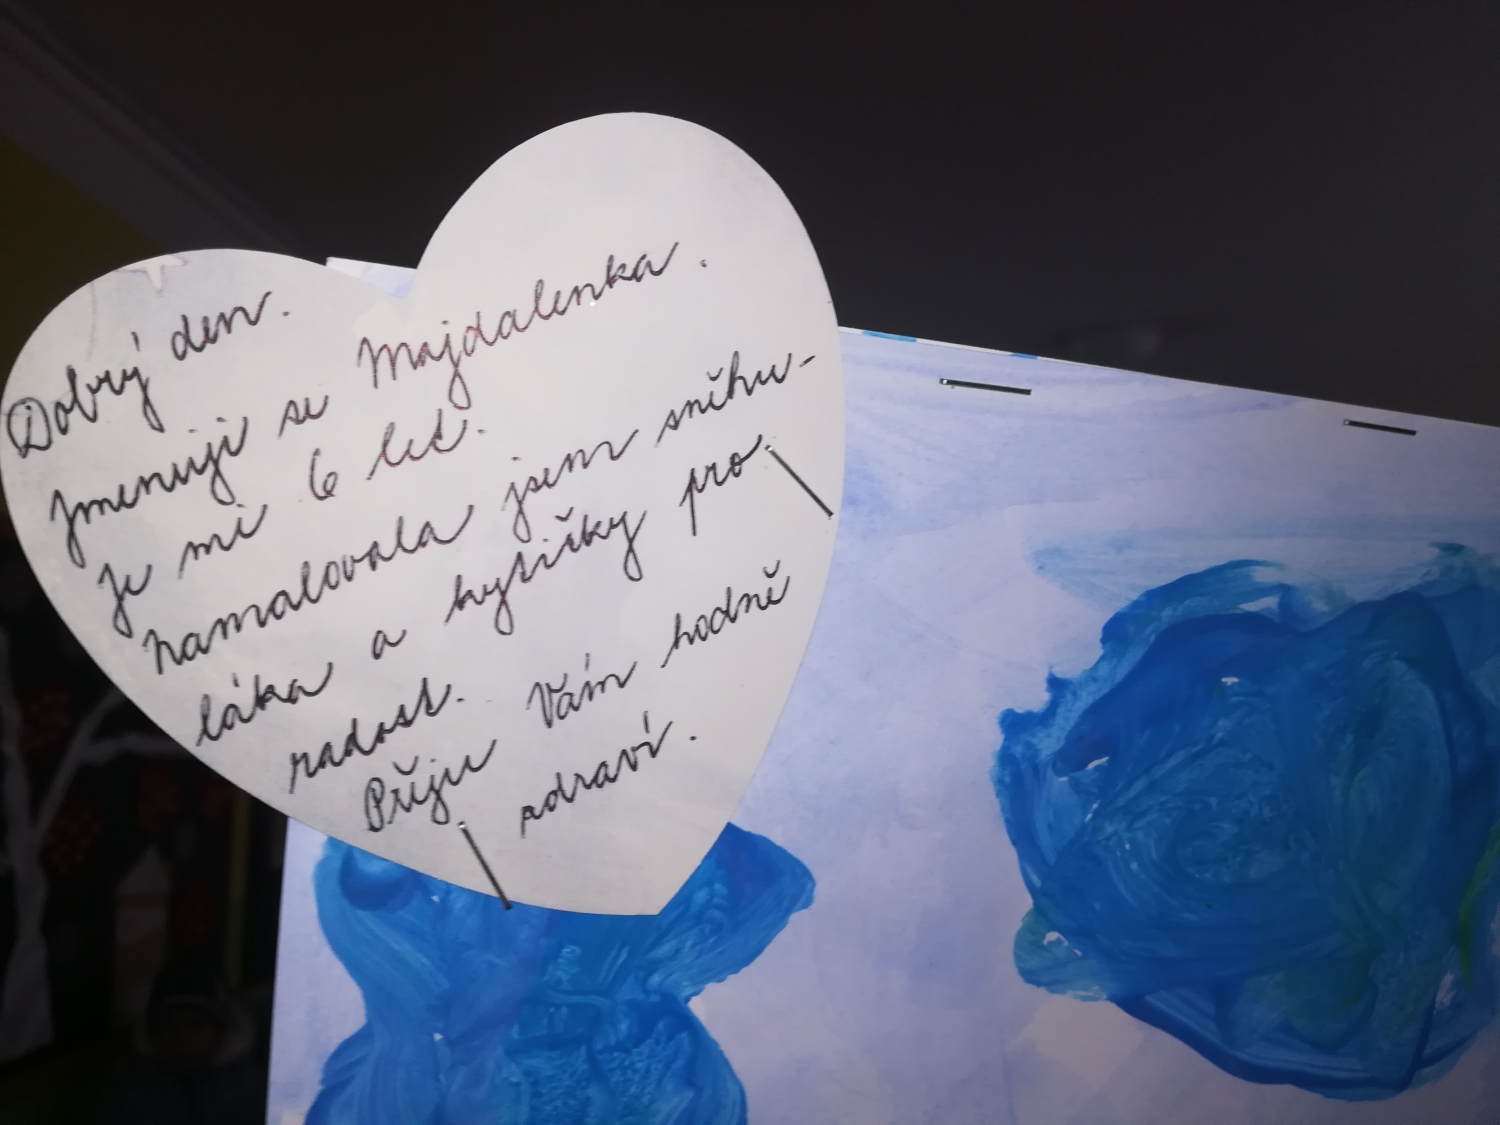 Dobrý den.
Jmenuji se Majdalenka.
Je mi 6 let.
Namalovala jsem sněhu-
láka a kytičky pro
radost.
Přeju Vám hodně
zdraví.